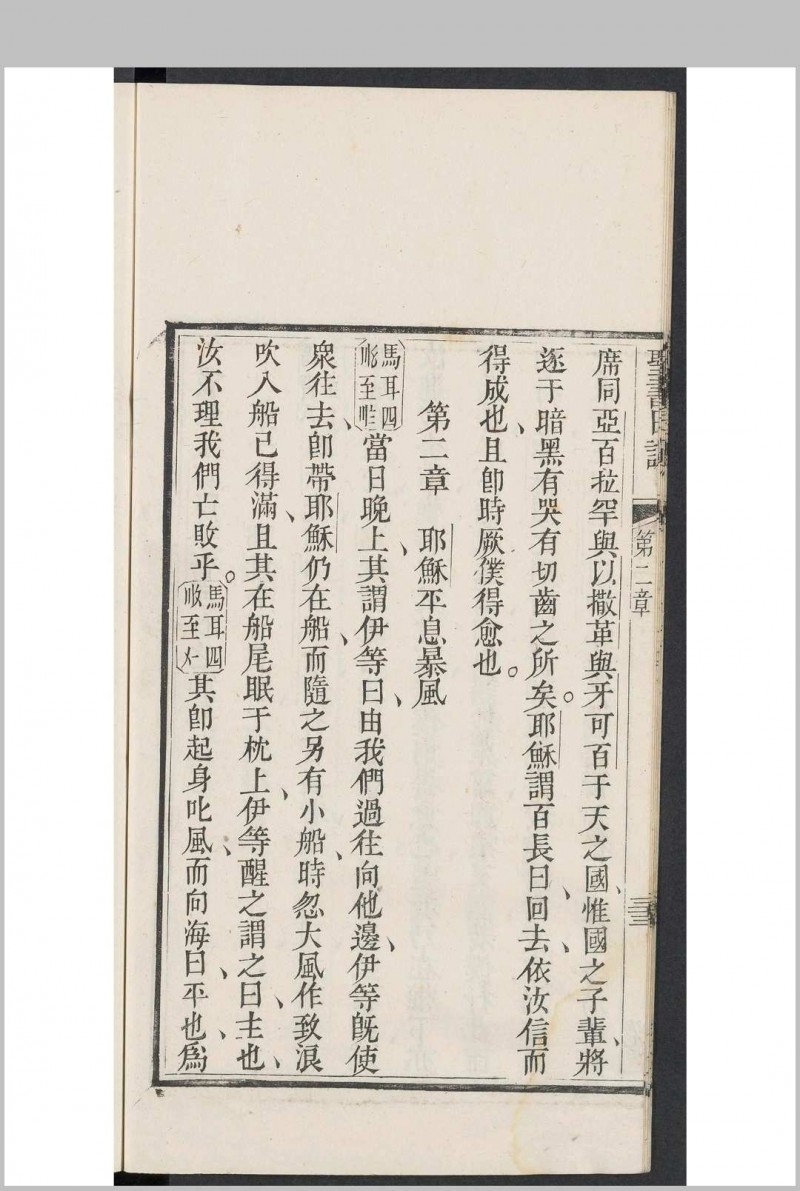 聖書日課 第二章
席同亞百拉罕與以撒革與牙可百于天之國、惟國之子輩、將
逐于暗黑有哭有切齒之所矣。耶穌謂百長曰、回去、依汝信而
得成也、且卽時厥僕得愈也。
第二章 耶穌平息暴風
馬耳四 至 當日晚上、其謂伊等曰、由我們過往向他邊、伊等旣使
衆往去、卽帶耶穌仍在船、而隨之另有小船、時忽大風作致浪
吹入船已得滿、且其在船尾眠于枕上、伊等醒之謂之曰、主也、
汝不理我們亡敗乎。馬耳四 至 其卽起身叱風、而向海曰、平也、爲